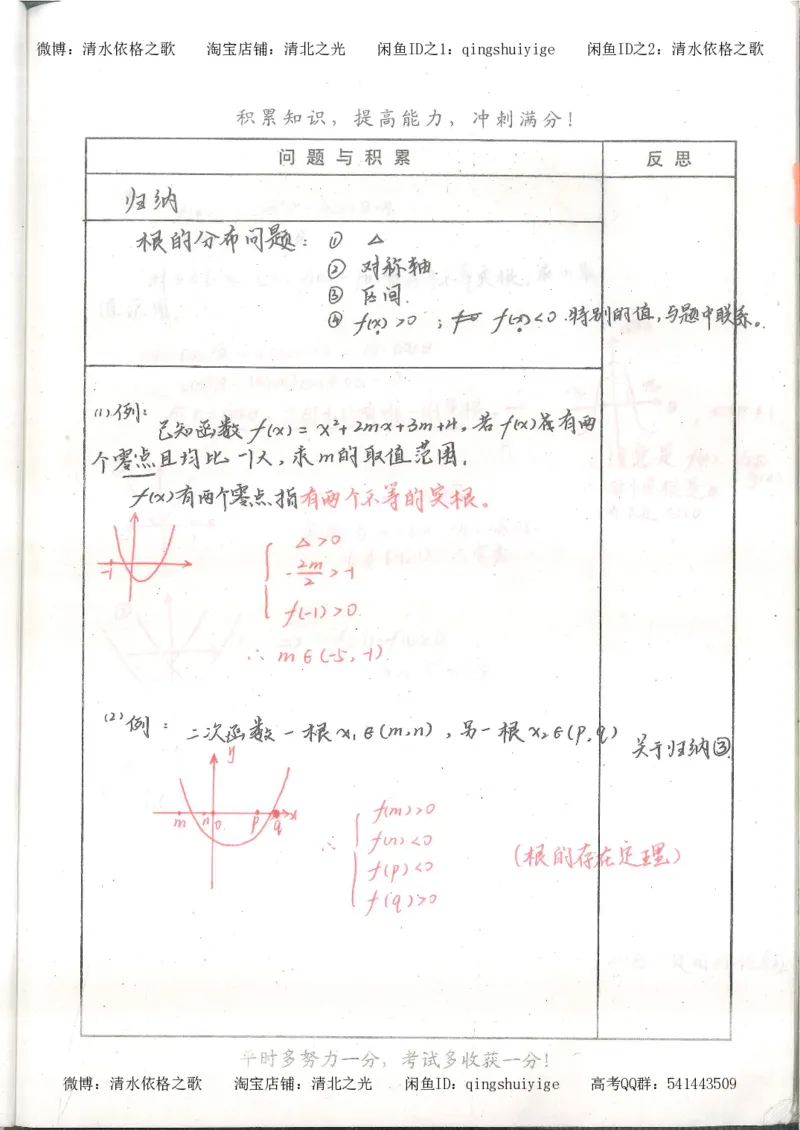 微博：清水依格之歌 淘宝店铺：清北之光 闲鱼ID之1：qingshuiyige 闲鱼ID之2：清水依格之歌
积累知识，提高能力，冲刺满分！
问题与积累 反思
归纳
根的分布问题：① △
② 对称轴
③ 区间.
④ f(x)>0 ； f(x)<0 .特别的值，与题中联系。
(1)例：
已知函数 f(x)=x²+2mx+3m+4。若f(x)有两
个零点且均比-1大，求m的取值范围.
f(x)有两个零点指有两个不等的实根。
-1
△>0
-2m/2>-1
f(-1)>0.
∴ m∈(-5,-1).
(2)例：二次函数一根x₁∈(m,n)，另一根x₂∈(p,q) 关于归纳③
y
m n o p q x
∴ f(m)>0
f(n)<0
f(p)<0
f(q)>0
(根的存在定理)
平时多努力一分，考试多收获一分！
微博：清水依格之歌 淘宝店铺：清北之光 闲鱼ID：qingshuiyige 高考QQ群：541443509